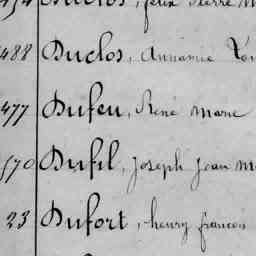 Duclos, félix Pierre M
488 Duclos, Annamie
477 Dufeu, René Marie
570 Dufil, Joseph Jean M
23 Dufort, henry francois